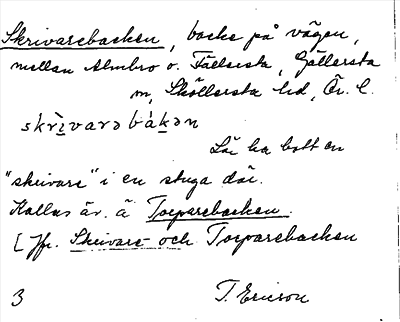 Skrivarebacken, backe på vägen,
mellan Almbro o. Fällersta, Gällersta
sn, Sköllersta hd, Ör. l.
skrìvarə bákən
Lär ha bott en
"skrivare" i en stuga där.
Kallas äv. å Torparebacken.
[Jfr. Skrivare- och Torparebacken
3 T. Ericson